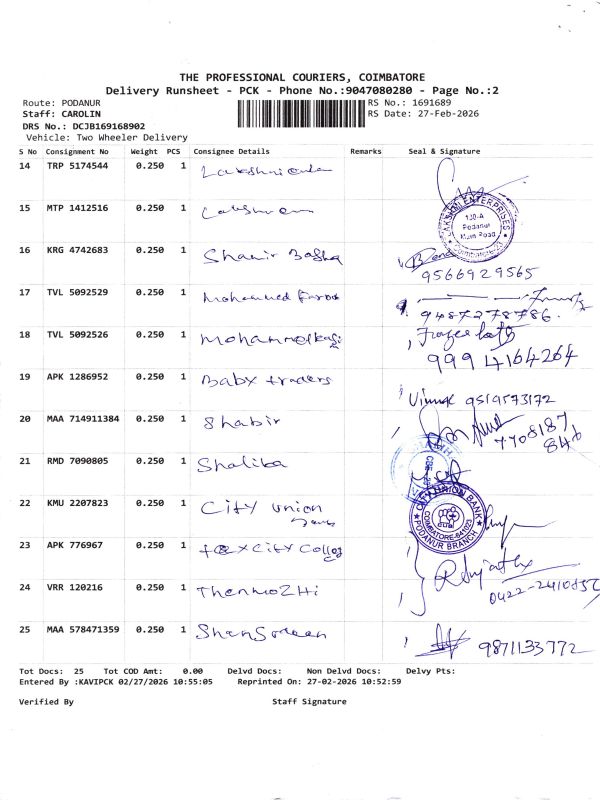 THE PROFESSIONAL COURIERS, COIMBATORE
Delivery Runsheet - PCK - Phone No.:9047080280 - Page No.:2
Route: PODANUR
Staff: CAROLIN
DRS No.: DCJB169168902
Vehicle: Two Wheeler Delivery
RS No.: 1691689
RS Date: 27-Feb-2026
S No Consignment No Weight PCS Consignee Details Remarks Seal & Signature
14 TRP 5174544 0.250 1
15 MTP 1412516 0.250 1
LAKSHMI ENTERPRISES
130-A
Podanur
Main Road
16 KRG 4742683 0.250 1 Shamir Basha
9566929565
17 TVL 5092529 0.250 1 Mohammed
9487278786.
18 TVL 5092526 0.250 1
9994164264
19 APK 1286952 0.250 1 Baby traders
9519573172
20 MAA 714911384 0.250 1 Shabir
7708187
846
21 RMD 7090805 0.250 1 Shalika
22 KMU 2207823 0.250 1 City union
CITY UNION BANK
COIMBATORE-641023
PODANUR BRANCH
23 APK 776967 0.250 1
24 VRR 120216 0.250 1 ThenmoZHi
25 MAA 578471359 0.250 1
9871133772
Tot Docs: 25 Tot COD Amt: 0.00 Delvd Docs: Non Delvd Docs: Delvy Pts:
Entered By :KAVIPCK 02/27/2026 10:55:05 Reprinted On: 27-02-2026 10:52:59
Verified By Staff Signature